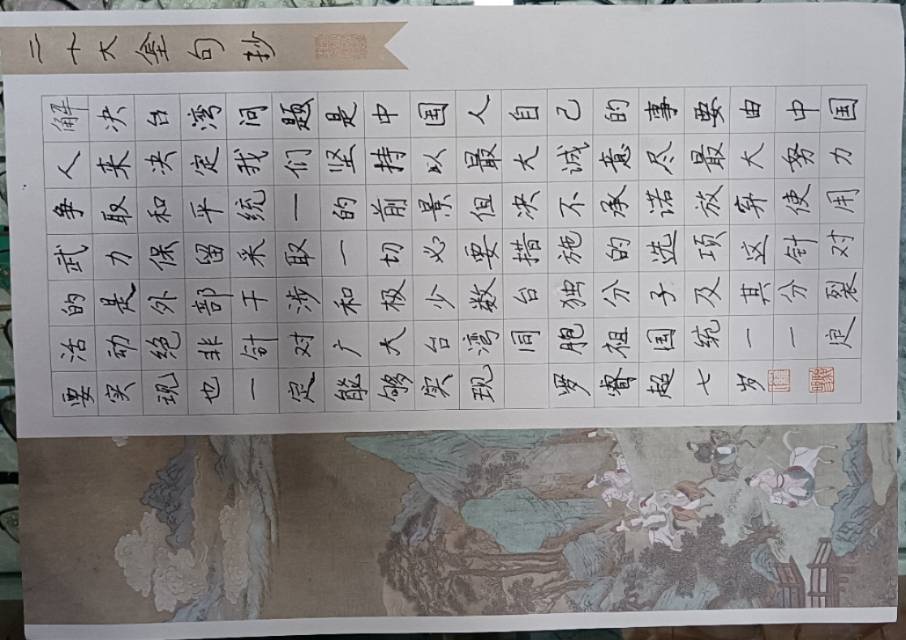 二十大金句抄
解决台湾问题是中国人自己的事要由中国
人来决定我们坚持以最大诚意尽最大努力
争取和平统一的前景但决不承诺放弃使用
武力保留采取一切必要措施的选项这针对
的是外部干涉和极少数台独分子及其分裂
活动绝非针对广大台湾同胞祖国统一一定
要实现也一定能够实现 罗睿超七岁